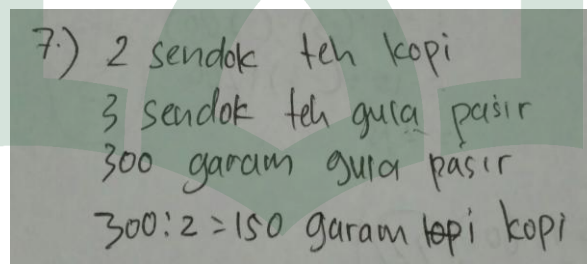 7.) 2 sendok teh kopi
3 sendok teh gula pasir
300 garam gula pasir
300:2=150 garam kopi